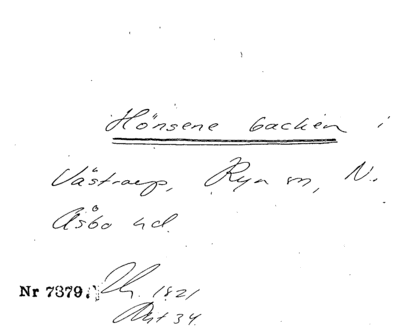 Hönsene backen i
Västraup, Rya sn, N.
Åsbo hd.
Nr 7379. 1821
34